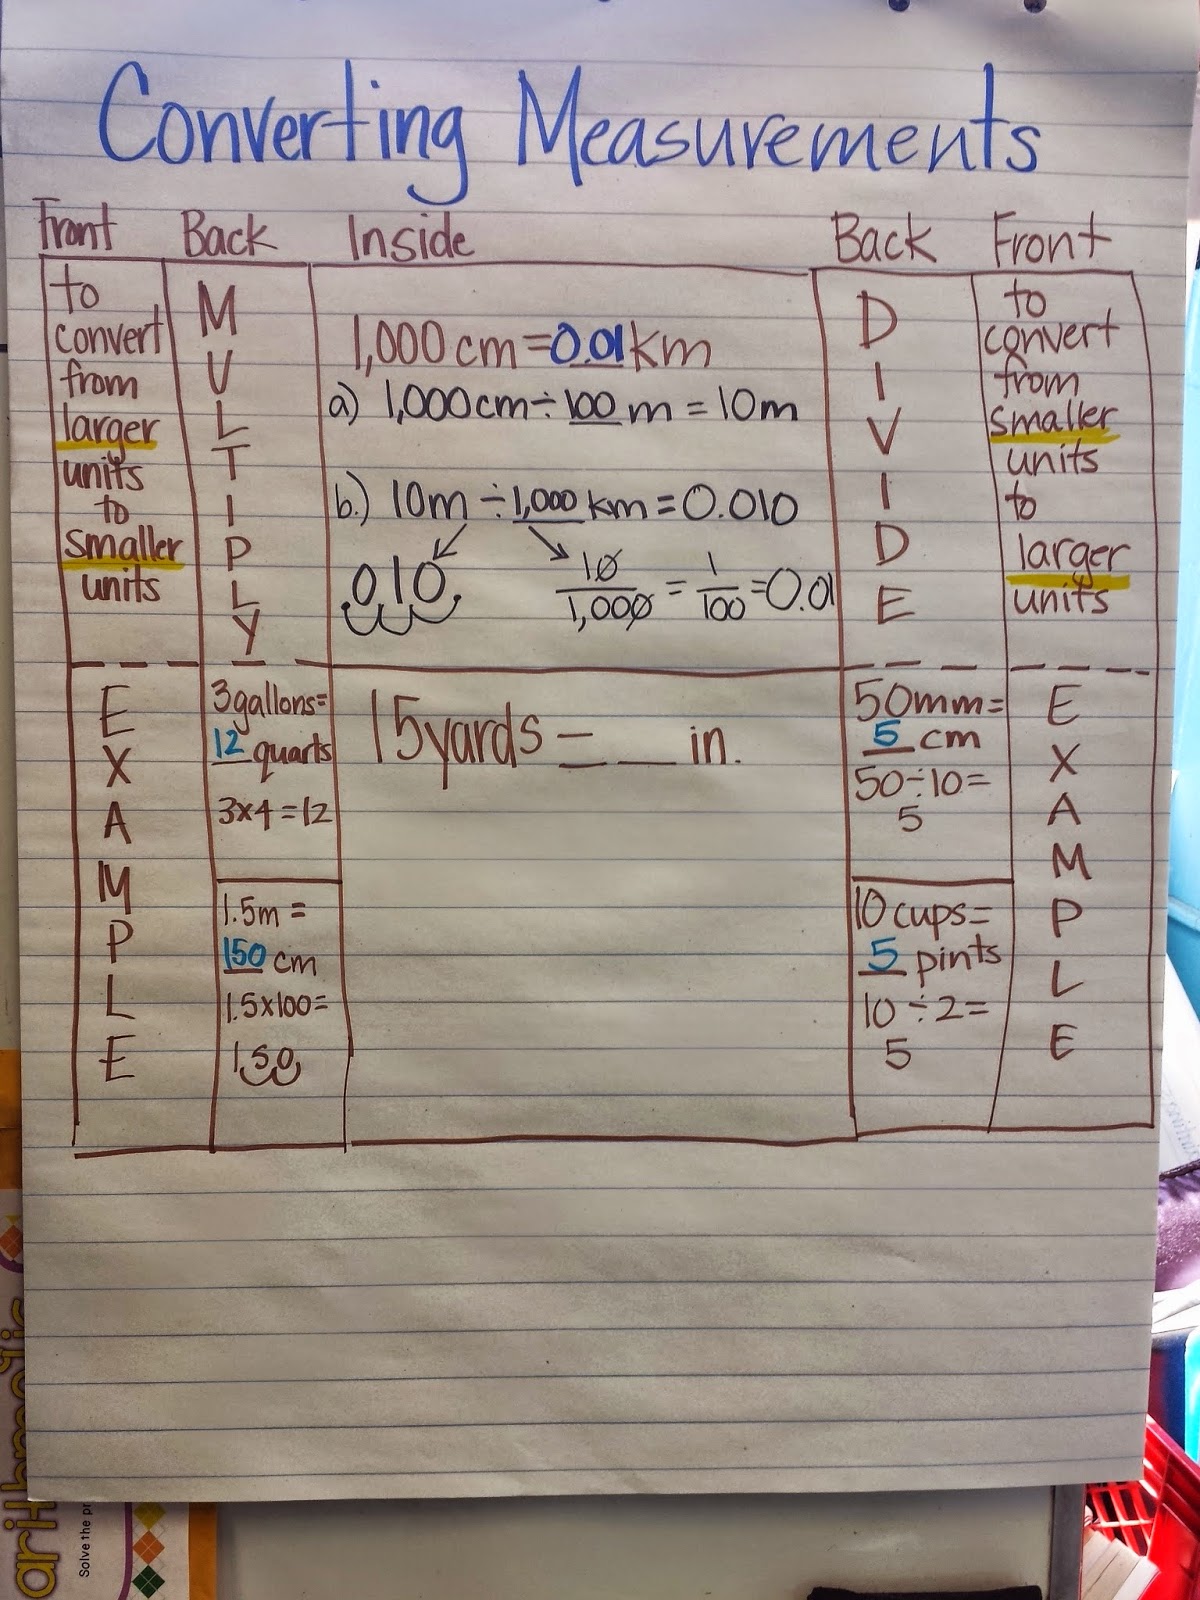 Converting Measurements
Front
Back
Inside
Back
Front
to
convert
from
larger
units
to
smaller
units
M
U
L
T
I
P
L
Y
1,000 cm = 0.01 km
a) 1,000 cm ÷ 100 m = 10m
b.) 10m ÷ 1,000 km = 0.010
.010.
10/1,000 = 1/100 = 0.01
D
I
V
I
D
E
to
convert
from
smaller
units
to
larger
units
E
X
A
M
P
L
E
3 gallons=
12 quarts
3x4=12
1.5m =
150 cm
1.5x100=
1.50
15 yards = __ in.
50mm=
5 cm
50÷10=
5
10 cups=
5 pints
10÷2=
5
E
X
A
M
P
L
E
Solve the pr